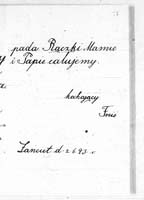 pada Rączki Mamie
i Papie całujemy.
kochający
Łancut d. 2 6 93.